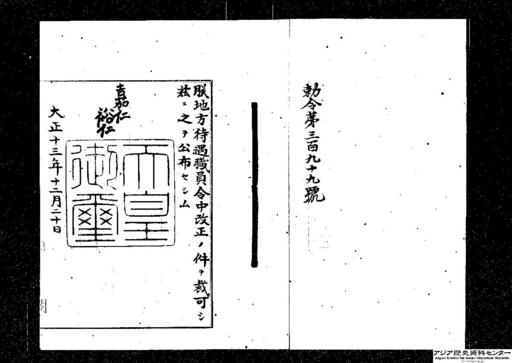 勅令第三百九十九號
朕地方待遇職員令中改正ノ件ヲ裁可シ
玆ニ之ヲ公布セシム
嘉仁
裕仁
天皇
御璽
大正十三年十二月二十日
アジア歴史資料センター
Japan Center for Asian Historical Records